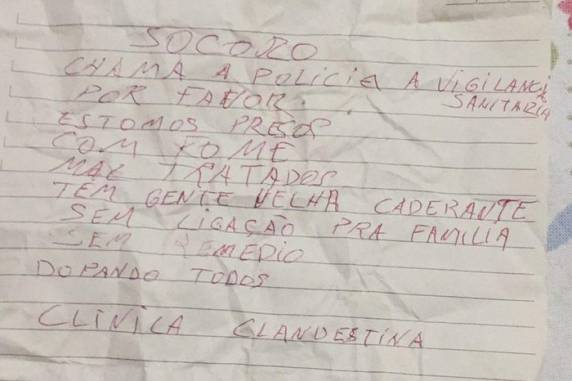 SOCORO
CHAMA A POLICIA A VIGILANCA
SANITARIA
POR FAVOR.
ESTOMOS PRESOS
COM FOME
MAL TRATADOS
TEM GENTE VELHA CADERANTE
SEM LIGAÇÃO PRA FAMILIA
SEM REMEDIO
DOPANDO TODOS
CLINICA CLANDESTINA